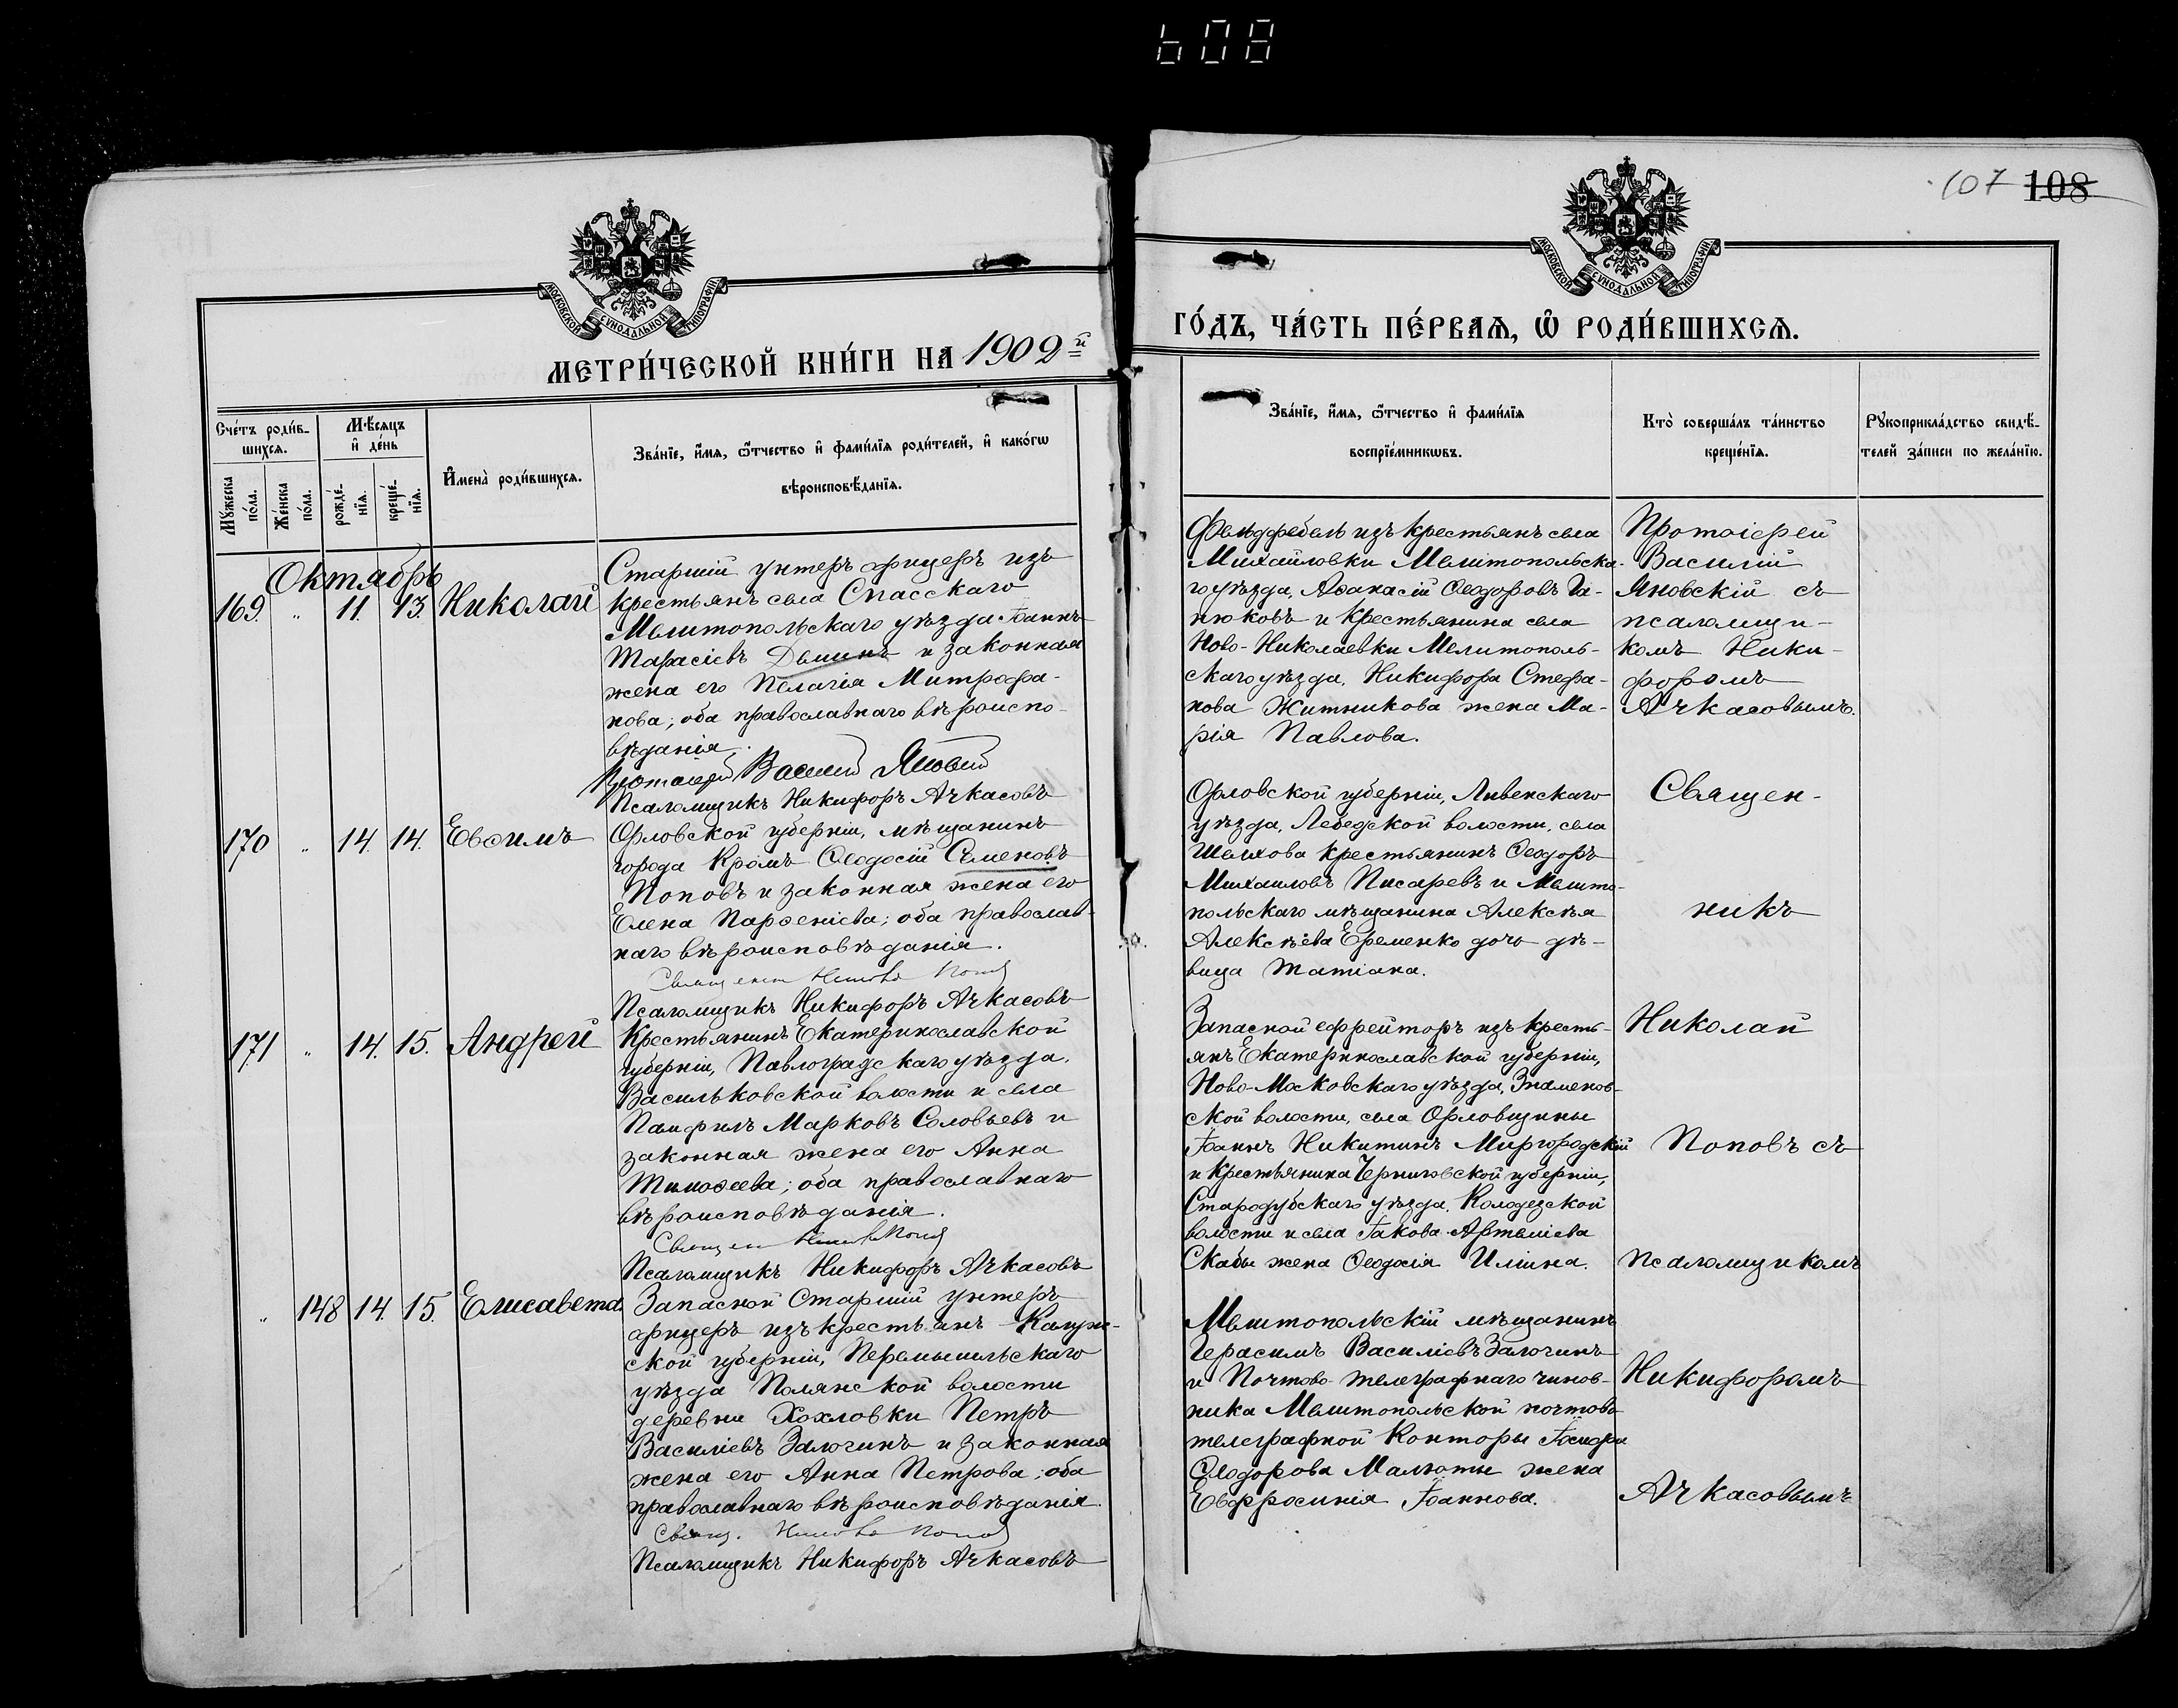 608
107 108
МОСКОВСКОЙ СѴНОДАЛЬНОЙ ТИПОГРАФІИ
МОСКОВСКОЙ СѴНОДАЛЬНОЙ ТИПОГРАФІИ
МЕТРИ́ЧЕСКОЙ КНИ́ГИ НА 1902й
ГО́ДЪ, ЧА́СТЬ ПЕ́РВАѦ, Ѿ РОДИ́ВШИХСѦ.
Сче́тъ роди́в-
шихсѧ.
Мꙋ́жеска по́ла.
Же́нска по́ла.
Мѣ́сѧцъ
и҆ де́нь
рожде́-
нїѧ.
креще́-
нїѧ.
И҆мена̀ роди́вшихсѧ.
Зва́нїе, и҆́мѧ, ѻ҆́тчество и҆ фами́лїѧ роди́телей, и҆ како́гѡ
вѣроисповѣ́данїѧ.
Зва́нїе, и҆́мѧ, ѻ҆́тчество и҆ фами́лїѧ
воспрїе́мникѡвъ.
Кто̀ соверша́лъ та́инство
креще́нїѧ.
Рꙋкоприкла́дство свидѣ́-
телей за́писи по жела́нїю.
Октябрь
169. " 11. 13. Николай
Старшій унтеръ офицеръ изъ
крестьянъ села Спасскаго
Мелитопольскаго уѣзда Іоаннъ
Тарасіевъ Деминъ и законная
жена его Пелагія Митрофа-
нова; оба православнаго вѣроиспо-
вѣданія.
Протоіерей Василій Яновский
Псаломщикъ Никифоръ Ачкасовъ
Фельдфебель изъ крестьянъ села
Михайловки Мелитопольска-
го уѣзда, Аѳанасій Ѳеодоровъ Га-
нюковъ и крестьянина села
Ново-Николаевки Мелитополь-
скаго уѣзда, Никифора Стефа-
нова Житникова жена Ма-
рія Павлова.
Протоіерей
Василій
Яновскій съ
псаломщи-
комъ Ники-
форомъ
Ачкасовымъ.
170 " 14. 14. Евѳимъ
Орловской губерніи, мѣщанинъ
города Кромъ Ѳеодосій Семеновъ
Поповъ и законная жена его
Елена Парѳеніева; оба православ-
наго вѣроисповѣданія.
Священ Николай Попов
Псаломщикъ Никифоръ Ачкасовъ
Орловской губерніи, Ливенскаго
уѣзда, Лебедской волости, села
Шелхова крестьянинъ Ѳеодоръ
Михаиловъ Писаревъ и Мелито-
польскаго мѣщанина Алексѣя
Алексѣева Еременко дочь дѣ-
вица Татіана.
Священ-
никъ
171 " 14. 15. Андрей
Крестьянинъ Екатеринославской
губерніи, Павлоградскаго уѣзда,
Васильковской волости и села
Панфилъ Марковъ Соловьевъ и
законная жена его Анна
Тимоѳеева; оба православнаго
вѣроисповѣданія.
Священ Николай Попов
Псаломщикъ Никифоръ Ачкасовъ
Запасной ефрейторъ изъ кресть-
янъ Екатеринославской губерніи,
Ново-Московскаго уѣзда, Знаменов-
ской волости, села Орловщины
Іоаннъ Никитинъ Миргородскій
и крестьянина Черниговской губерніи,
Стародубскаго уѣзда, Колодезской
волости и села Іакова Артеміева
Скабы жена Ѳеодосія Ильина.
Николай
Поповъ съ
псаломщикомъ
" 148 14. 15. Елисавета.
Запасной старшій унтеръ
офицеръ изъ крестьянъ Калуж-
ской губерніи, Перемышльскаго
уѣзда Полянской волости
деревни Хохловки Петръ
Василіевъ Залогинъ и законная
жена его Анна Петрова; оба
православнаго вѣроисповѣданія.
Свящ. Николай Попов
Псаломщикъ Никифоръ Ачкасовъ
Мелитопольскій мѣщанинъ
Герасимъ Василіевъ Залогинъ
и Почтово-телеграфнаго чинов-
ника Мелитопольской почтово
телеграфной Конторы Іосифа
Ѳеодорова Малюты жена
Евфросинія Іоаннова.
Никифоромъ
Ачкасовымъ